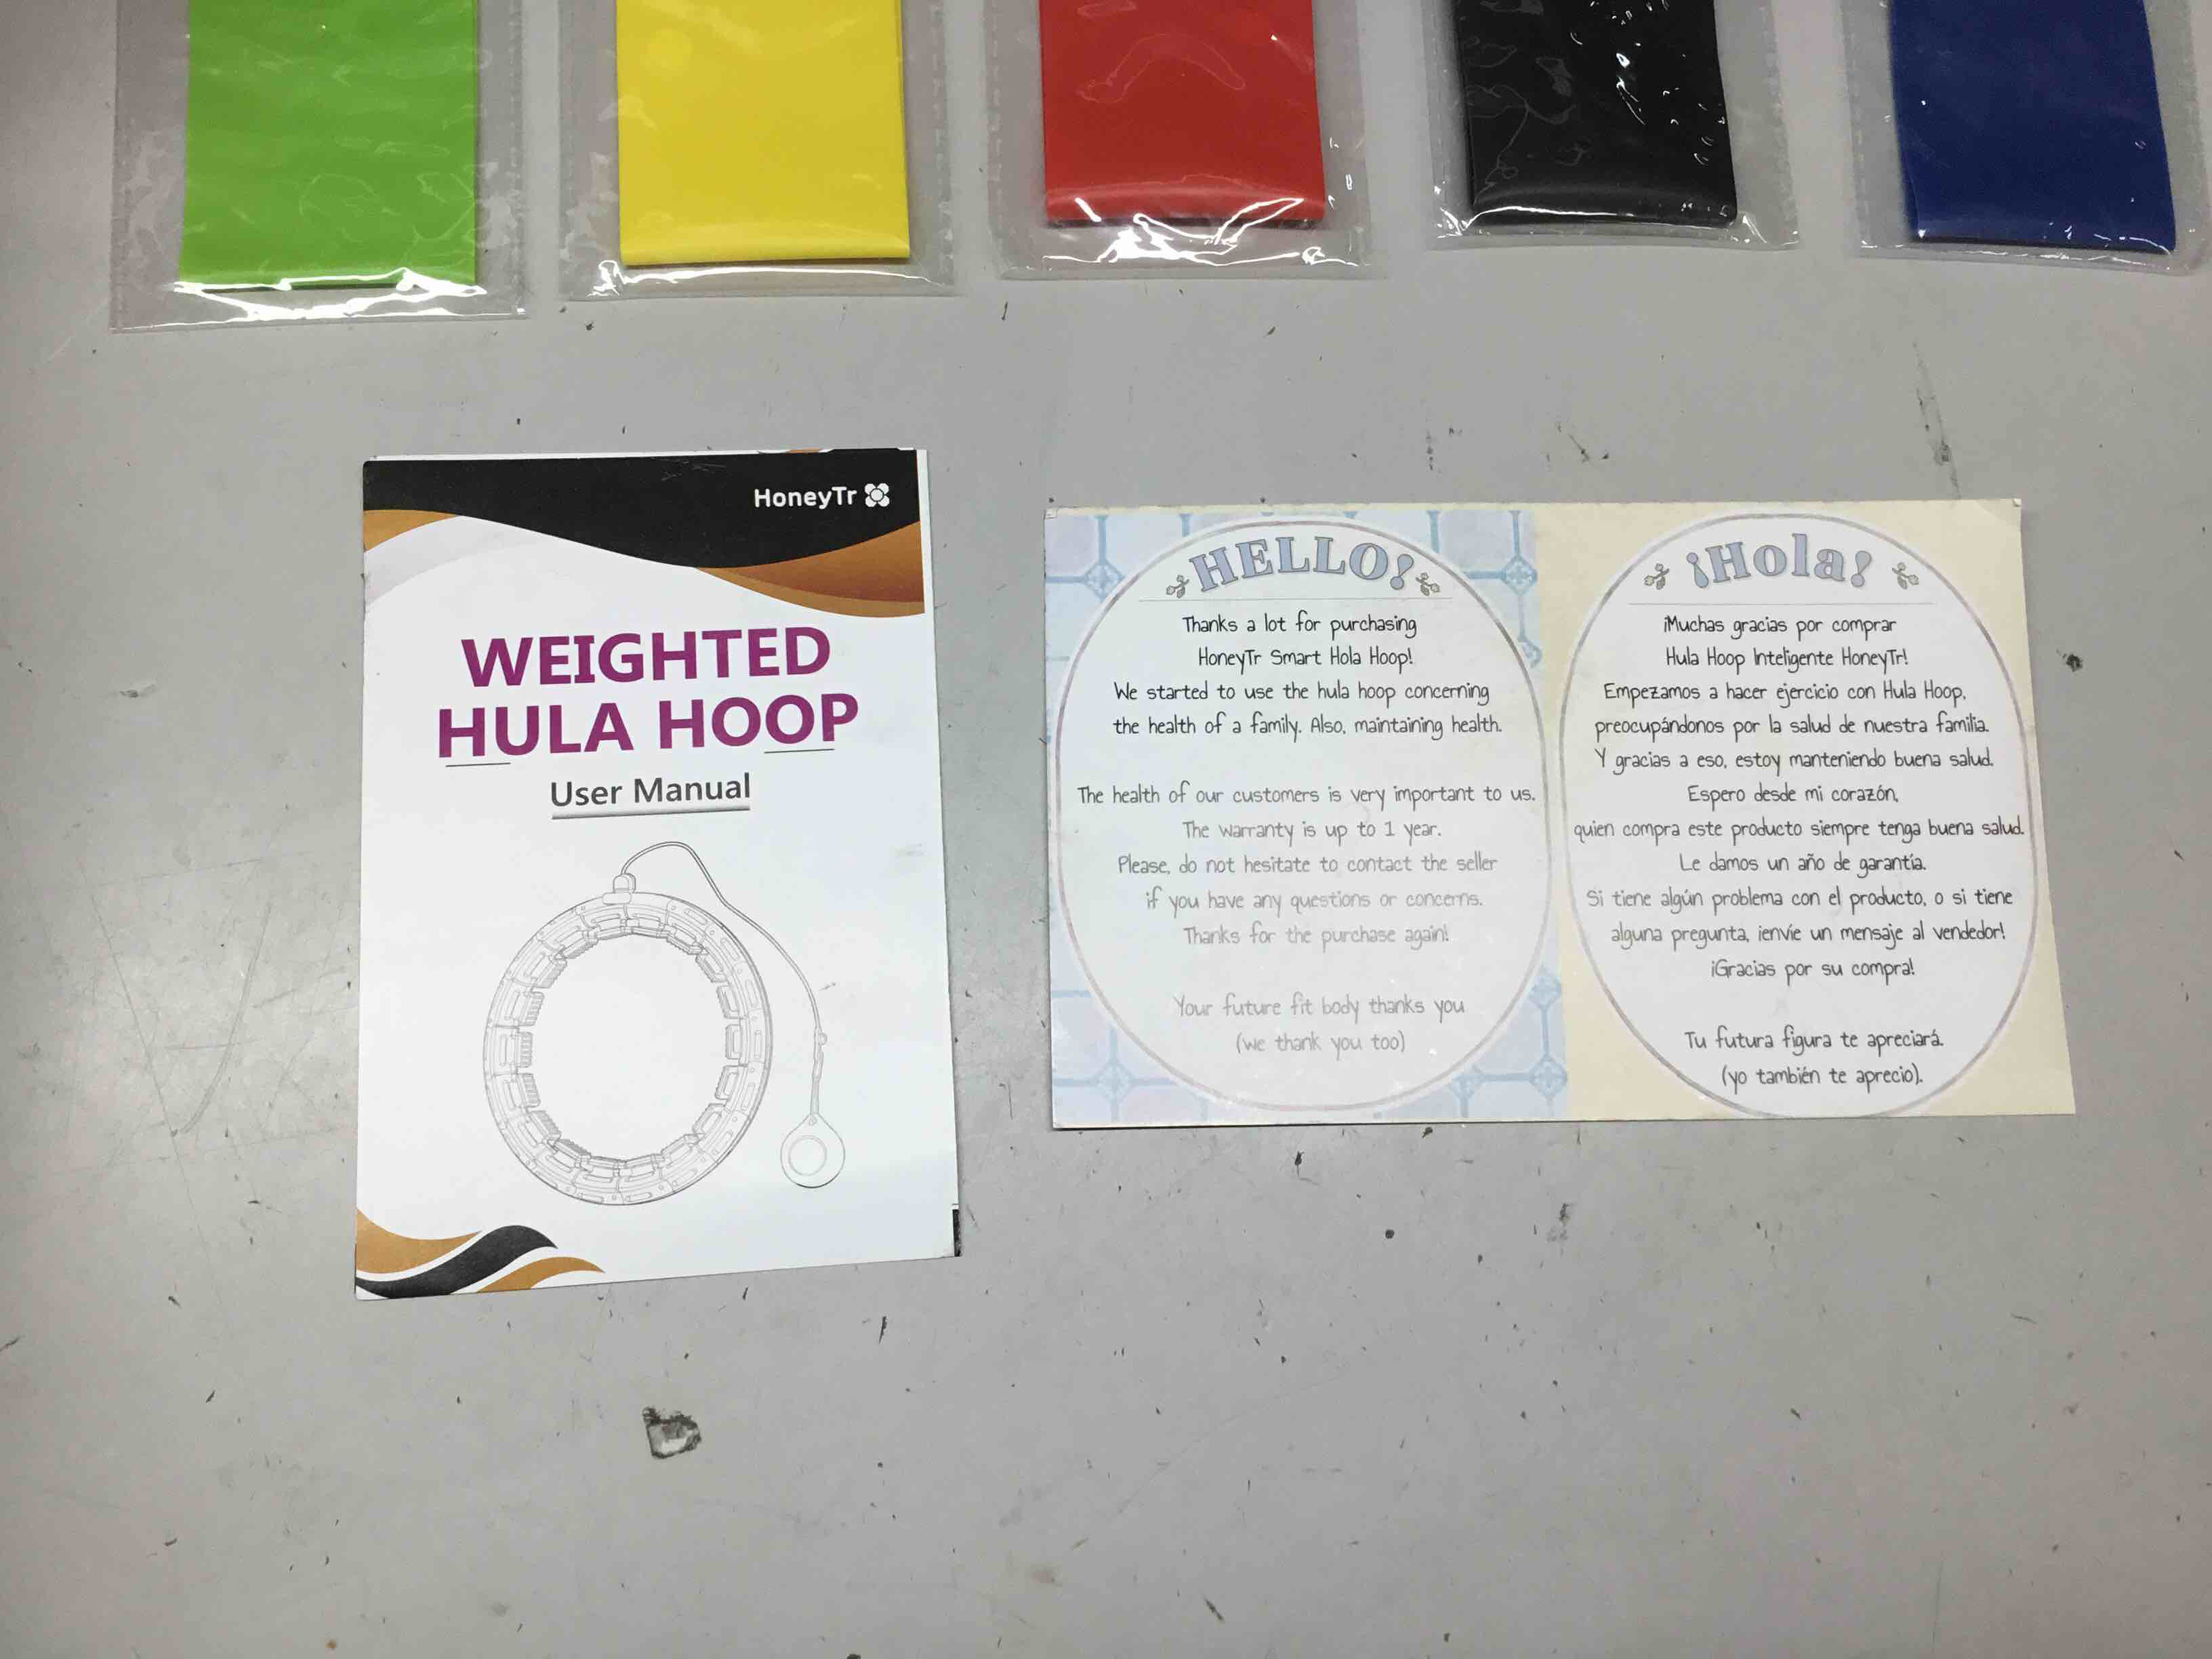 HoneyTr
WEIGHTED
HULA HOOP
User Manual
HELLO!
Thanks a lot for purchasing
HoneyTr Smart Hola Hoop!
We started to use the hula hoop concerning
the health of a family. Also, maintaining health.
The health of our customers is very important to us.
The warranty is up to 1 year.
Please, do not hesitate to contact the seller
if you have any questions or concerns.
Thanks for the purchase again!
Your future fit body thanks you
(we thank you too)
¡Hola!
¡Muchas gracias por comprar
Hula Hoop Inteligente HoneyTr!
Empezamos a hacer ejercicio con Hula Hoop,
preocupándonos por la salud de nuestra familia.
Y gracias a eso, estoy manteniendo buena salud.
Espero desde mi corazón,
quien compra este producto siempre tenga buena salud.
Le damos un año de garantía.
Si tiene algún problema con el producto, o si tiene
alguna pregunta, ¡envíe un mensaje al vendedor!
¡Gracias por su compra!
Tu futura figura te apreciará.
(yo también te aprecio).